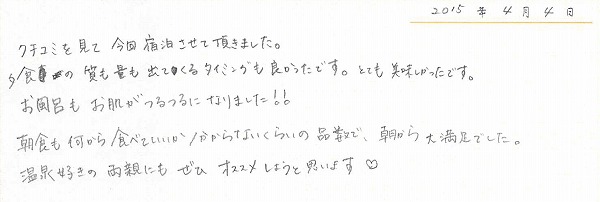 2015 年 4 月 4 日
クチコミを見て 今回 宿泊させて頂きました。
夕食の 質も量も 出てくるタイミングも良かったです。とても美味しかったです。
お風呂も お肌がつるつるに なりました!!
朝食も 何から食べていいか分からないくらいの 品数で、朝から 大満足でした。
温泉好きの 両親にも ぜひ オススメしようと思います ♡